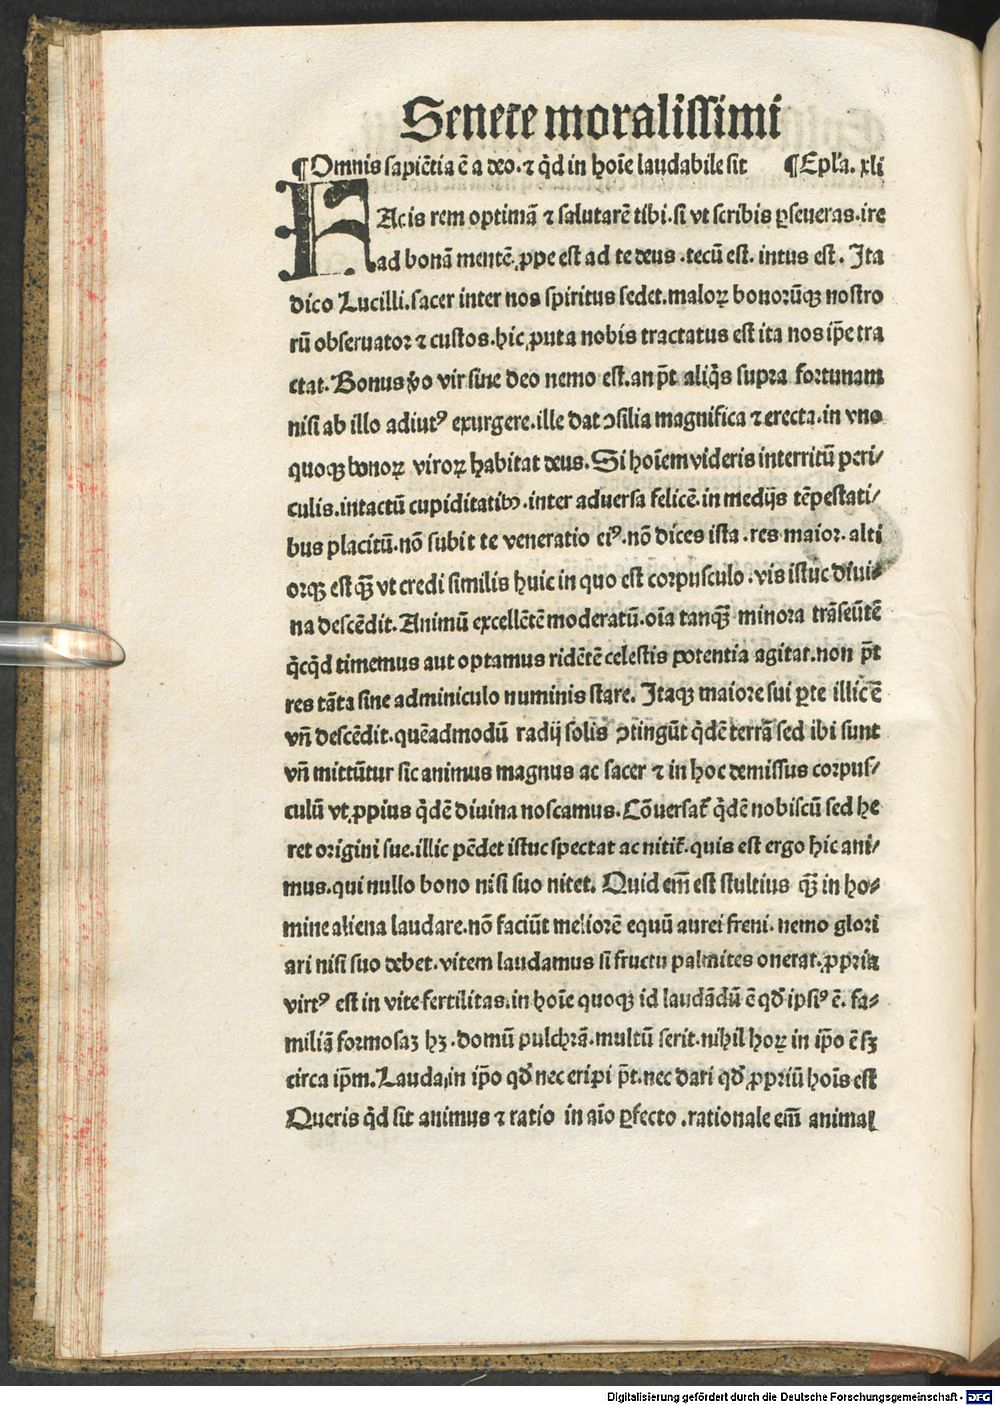 Senece moralissimi
¶Omnis sapiẽtia ẽ a deo. ⁊ q̃d in hoĩe laudabile sit ¶Epl̃a. xli
FAcis rem optimã ⁊ salutarẽ tibi. si vt scribis ꝑseueras. ire
ad bonã mentẽ. ꝓpe est ad te deus. tecũ est. intus est. Ita
dico Lucilli. sacer inter nos spiritus sedet. maloꝝ bonorũqꝫ nostro
rũ obseruator ⁊ custos. hic ꝓut a nobis tractatus est ita nos ip̃e tra
ctat. Bonus ꝟo vir sine deo nemo est. an p̃t aliq̃s supra fortunam
nisi ab illo adiutꝰ exurgere. ille dat ꝯsilia magnifica ⁊ erecta. in vno
quoqꝫ bonoꝝ viroꝝ habitat deus. Si hoĩem videris interritũ peri⸗
culis. intactũ cupiditatibꝫ. inter aduersa felicẽ. in medijs tẽpestati⸗
bus placitũ. nõ subit te veneratio eiꝰ. nõ dices ista. res maior. alti
orqꝫ est qꝫ̃ vt credi similis huic in quo est corpusculo. vis istuc diui⸗
na descẽdit. Animũ excellẽtẽ moderatũ. oĩa tanqꝫ̃ minora trãseũtẽ
q̃cq̃d timemus aut optamus ridẽtẽ celestis potentia agitat. non p̃t
res tãta sine adminiculo numinis stare. Itaqꝫ maiore sui ꝑte illic ẽ
vñ descẽdit. quẽadmodũ radij solis ꝯtingũt q̃dẽ terrã sed ibi sunt
vñ mittũtur sic animus magnus ac sacer ⁊ in hoc demissus corpus⸗
culũ vt ꝓpius q̃dẽ diuina noscamus. Cõuersat̃ q̃dẽ nobiscũ sed he
ret origini sue. illic pẽdet istuc spectat ac nitit̃. quis est ergo hic ani⸗
mus. qui nullo bono nisi suo nitet. Quid em̃ est stultius qꝫ̃ in ho⸗
mine aliena laudare. nõ faciũt meliorẽ equũ aurei freni. nemo glori
ari nisi suo debet. vitem laudamus si fructu palmites onerat. ꝓpria
virtꝰ est in vite fertilitas. in hoĩe quoqꝫ id laudãdũ ẽ qd̃ ipsiꝰ ẽ. fa⸗
miliã formosaꝫ hꝫ. domũ pulchrã. multũ serit. nihil hoꝝ in ip̃o ẽ sꝫ
circa ip̃m. Lauda in ip̃o qd̃ nec eripi p̃t. nec dari qd̃ ꝓpriũ hoĩs est
Queris q̃d sit animus ⁊ ratio in aĩo ꝑfecto. rationale em̃ animal
Digitalisierung gefördert durch die Deutsche Forschungsgemeinschaft - DFG